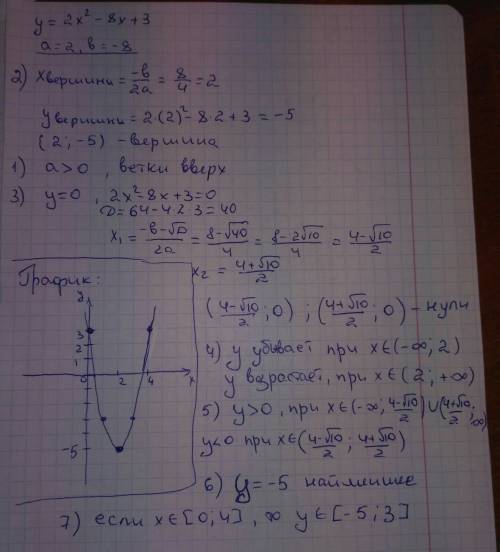 y = 2x² - 8x + 3
a = 2, в = -8
2) Xвершины = -в/2a = 8/4 = 2
Yвершины = 2·(2)² - 8·2 + 3 = -5
(2; -5) - вершина
1) a>0, ветки вверх
3) y=0, 2x²-8x+3=0
D = 64-4·2·3 = 40
x₁ = (-в-√D)/2a = (8-√40)/4 = (8-2√10)/4 = (4-√10)/2
x₂ = (4+√10)/2
График:
y
3
2
1
0
2
4
x
-5
((4-√10)/2; 0) ; ((4+√10)/2; 0) - нули
4) y убывает при x∈(-∞; 2)
y возрастает, при x∈(2; +∞)
5) y>0, при x∈(-∞; (4-√10)/2)∪((4+√10)/2; ∞)
y<0 при x∈((4-√10)/2; (4+√10)/2)
6) y = -5 наименьшее
7) если x∈[0; 4], y∈[-5; 3]